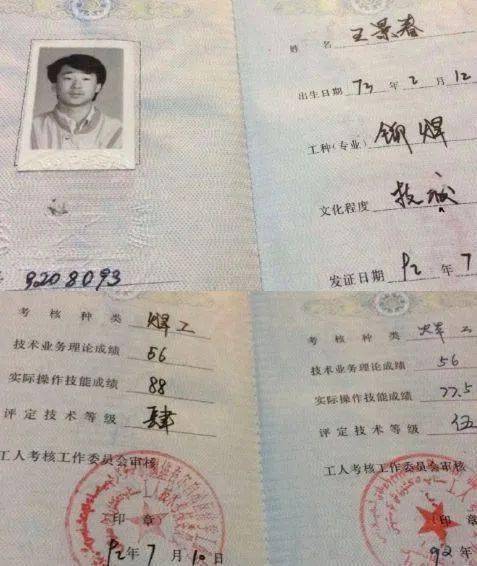 9208093
姓名 王景春
出生日期 73 年 2 月 12
工种(专业) 铆焊
文化程度 技城
发证日期 92 年 7
考核种类 焊工
技术业务理论成绩 56
实际操作技能成绩 88
评定技术等级 肆
工人考核工作委员会审核
(印章)
92 年 7 月 10 日
考核种类
技术业务理论成绩 56
实际操作技能成绩 77.5
评定技术等级 伍
工人考核工作委员会审核
(印章)
92 年